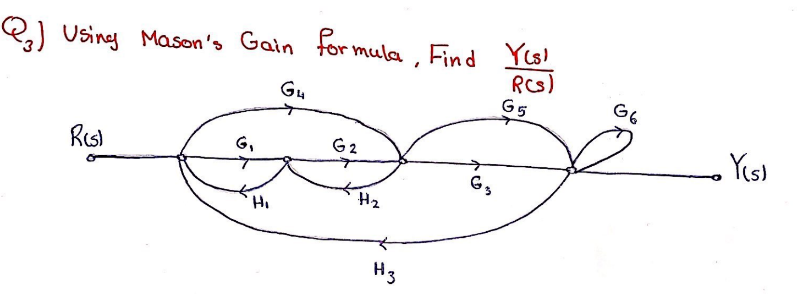 Q3) Using Mason's Gain formula, Find Y(s)/R(s)
G4
G5
G6
R(s)
G1
G2
Y(s)
H1
H2
G3
H3